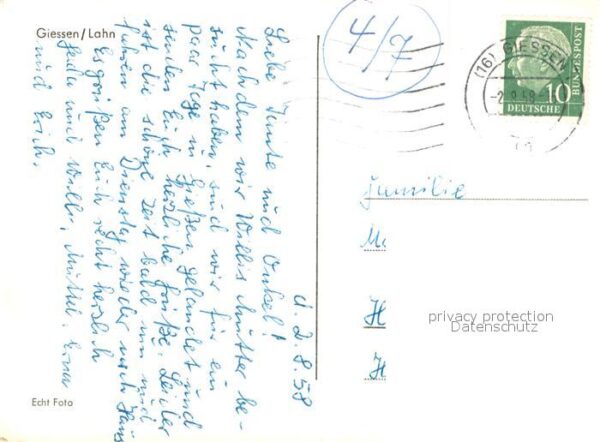 Giessen/Lahn
4/7
(16) GIESSEN
DEUTSCHE
BUNDESPOST
10
d. 2.9.58
Liebe Tante und Onkel!
Nachdem wir Willis Mutter be-
sucht haben, sind wir für ein
paar Tage in Gießen gelandet und
senden Euch herzliche Grüße. Leider
ist die schöne Zeit bald um und
fahren am Dienstag wieder nach Haus
Es grüßen Euch recht herzlich
und Willi, Mutti, Erna
und Erich.
Familie
M.
H
H
privacy protection
Datenschutz
Echt Foto